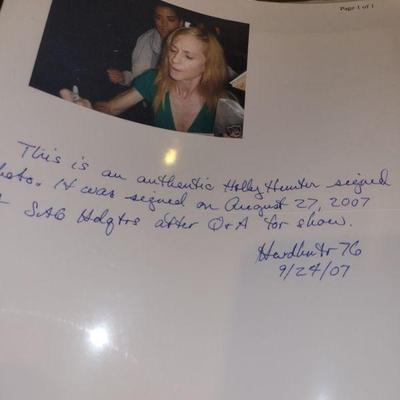 Page 1 of 1
This is an authentic Holly Hunter signed
hoto. It was signed on August 27, 2007
SAG Hdqtrs after Q+A for show.
9/24/07